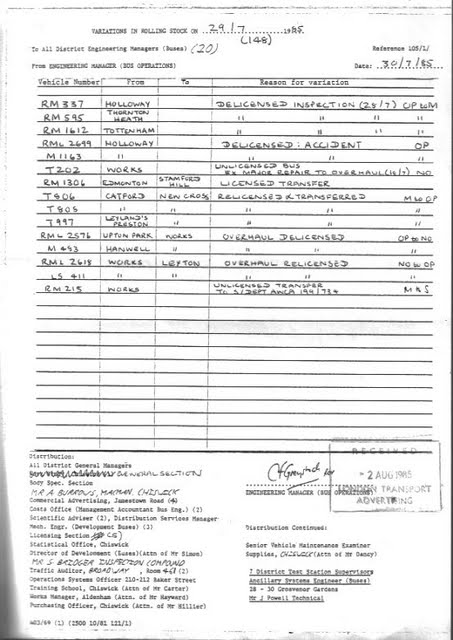 VARIATIONS IN ROLLING STOCK ON 29/7 1985
(148)
To All District Engineering Managers (Buses) (20) Reference 105/1/
From ENGINEERING MANAGER (BUS OPERATIONS) Date: 30/7/85
Vehicle Number From To Reason for variation
RM 337 HOLLOWAY DELICENSED INSPECTION (28/7) OP to M
RM 595 THORNTON HEATH " " " "
RM 1612 TOTTENHAM " " " "
RML 2699 HOLLOWAY DELICENSED: ACCIDENT OP
M 1163 " " " "
T202 WORKS UNLICENSED BUS EX MAJOR REPAIR TO OVERHAUL NO
RM 1306 EDMONTON STAMFORD HILL LICENSED TRANSFER
T806 CATFORD NEW CROSS RELICENSED & TRANSFERRED M to OP
T805 " " " " "
T997 LEYLAND'S PRESTON " " " "
RML 2576 UPTON PARK WORKS OVERHAUL DELICENSED OP to NO
M 493 HANWELL " " " "
RML 2618 WORKS LEYTON OVERHAUL RELICENSED NO to OP
LS 411 " " " " "
RM 215 WORKS UNLICENSED TRANSFER TO S/DEPT AWCA 194/734 M to S
Distribution:
All District General Managers
GENERAL SECTION
Body Spec. Section
MR A BURROWS, CHISWICK
Commercial Advertising, Jamestown Road (4)
Costs Office (Management Accountant Bus Eng.) (2)
Scientific Adviser (2), Distribution Services Manager
Mech. Engr. (Development Buses) (2)
Licensing Section
Statistical Office, Chiswick
Director of Development (Buses)(Attn of Mr Simon)
MR S. BRIDGER INSPECTION COMPOUND
Traffic Auditor, BROADWAY, Room (2)
Operations Systems Officer 210-212 Baker Street
Training School, Chiswick (Attn of Mr Carter)
Works Manager, Aldenham (Attn. of Mr Hayward)
Purchasing Officer, Chiswick (Attn. of Mr Hillier)
for
ENGINEERING MANAGER (BUS OPERATIONS)
RECEIVED
2 AUG 1985
LONDON TRANSPORT
ADVERTISING
Distribution Continued:
Senior Vehicle Maintenance Examiner
Supplies, CHISWICK (Attn of Mr Dancy)
7 District Test Station Supervisors
Ancillary Systems Engineer (Buses)
28 - 30 Grosvenor Gardens
Mr J Powell Technical
(1) (2500 10/82 121/1)